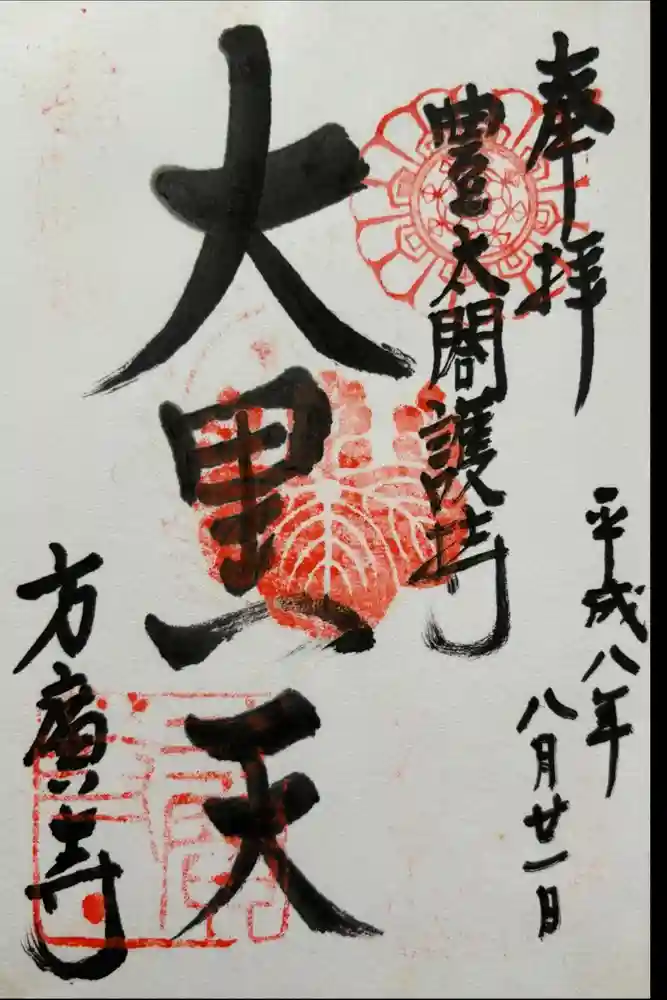 奉拝
平成八年
八月廿一日
豐太閤護持
大黒天
方廣寺